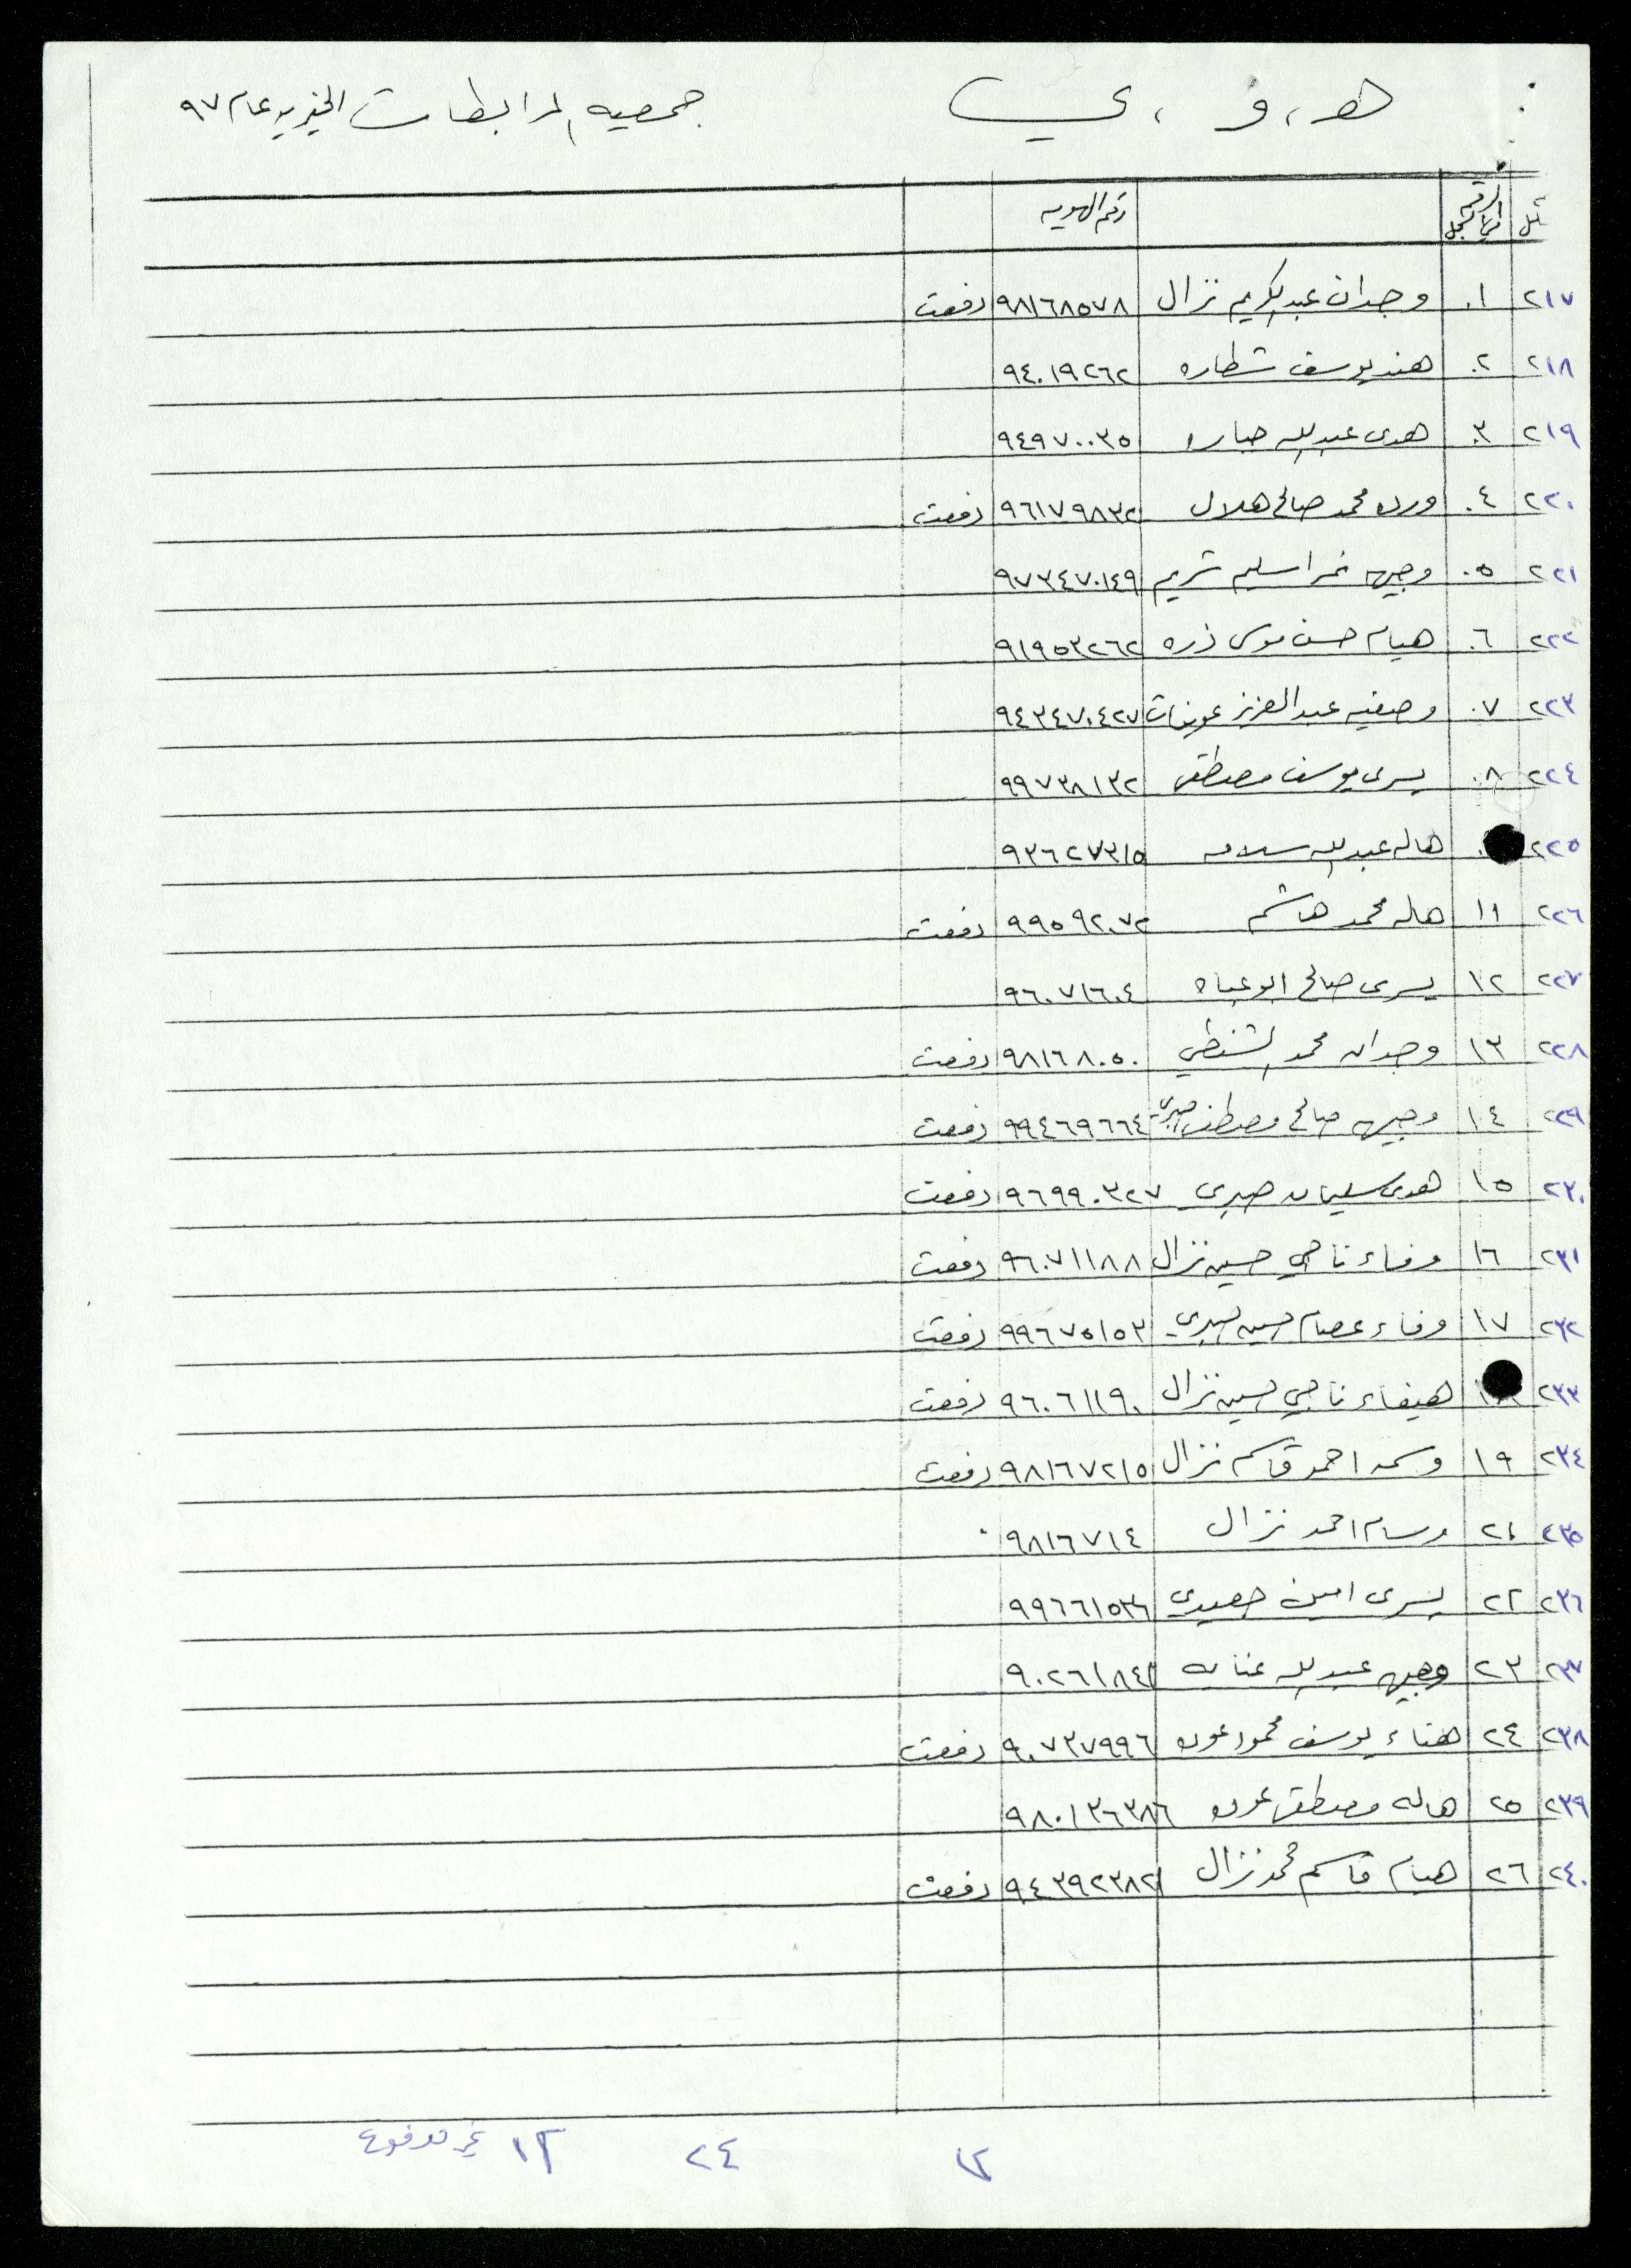 هـ ، و ، ي جمعيه المرابطات الخيريه عام ٩٧
رقم الهويه
٢١٧ ١. وجدان عبد الكريم نزال ٩٨١٦٨٥٧٨ دفعت
٢١٨ ٢. هند يوسف شطاره ٩٤٠١٩٢٦٢
٢١٩ ٣. هدى عبد الله جباره ٩٤٩٧٠٠٣٥
٢٢٠ ٤. ورده محمد صالح هلال ٩٦١٧٩٨٣٢ دفعت
٢٢١ ٥. وجيهه نمر اسليم شريم ٩٧٣٤٧٠١٤٩
٢٢٢ ٦. هيام حسن موسى ذره ٩١٩٥٣٢٦٢
٢٢٣ ٧. وصفيه عبد العزيز عوينات ٩٤٣٤٧٠٤٢٧
٢٢٤ ٨. يسرى يوسف مصطفى ٩٩٧٣٨١٣٢
٢٢٥ هاله عبد الله سلامه ٩٣٦٢٧٣١٥
٢٢٦ ١١ هاله محمد هاشم ٩٩٥٩٢٠٧٢ دفعت
٢٢٧ ١٢ يسرى صالح ابو عباه ٩٦٠٧١٦٠٤
٢٢٨ ١٣ وجدان محمد الشنطي ٩٨١٦٨٠٥٠ دفعت
٢٢٩ ١٤ وجيهه صالح مصطفى صبري ٩٩٤٦٩٦٦٤ دفعت
٢٣٠ ١٥ هدى سليمان صبري ٩٦٩٩٠٣٢٧ دفعت
٢٣١ ١٦ وفاء ناجي حسين نزال ٩٦٠٧١١٨٨ دفعت
٢٣٢ ١٧ وفاء عصام حسين صبري ٩٩٦٧٥١٥٣ دفعت
٢٣٣ هيفاء ناجي حسين نزال ٩٦٠٦١١٩٠ دفعت
٢٣٤ ١٩ وسمه احمد قاسم نزال ٩٨١٦٧٢١٥ دفعت
٢٣٥ ٢١ وسام احمد نزال ٩٨١٦٧١٤
٢٣٦ ٢٢ يسرى امين جعيدي ٩٩٦٦١٥٣٦
٢٣٧ ٢٣ وجيهه عبد الله عنايه ٩٠٢٦١٨٤١
٢٣٨ ٢٤ هناء يوسف محمود عوده ٩٠٧٣٧٩٩٦ دفعت
٢٣٩ ٢٥ هاله مصطفى عوده ٩٨٠١٣٦٣٨٦
٢٤٠ ٢٦ هيام قاسم محمد نزال ٩٤٣٩٢٣٨٢ دفعت
١٢ ٢٤ ١٢ غير مدفوع